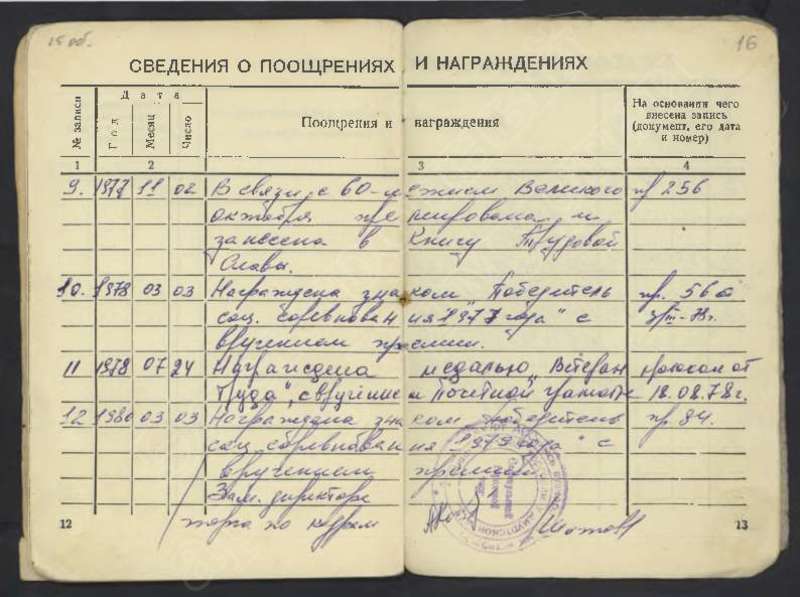 15 об.
16
СВЕДЕНИЯ О ПООЩРЕНИЯХ И НАГРАЖДЕНИЯХ
№ записи
Дата
Год
Месяц
Число
Поощрения и награждения
На основании чего
внесена запись
(документ, его дата
и номер)
1 2 3 4
9. 1977 11 02 В связи с 60-летием Великого пр 256
октября премирована и
занесена в Книгу Трудовой
Славы.
10. 1978 03 03 Награждена знаком „Победитель пр. 56
соц. соревнования 1977 года" с
вручением премии.
11 1978 07 24 Награждена медалью „Ветеран
Труда", с вручением Почетной грамоты 18.08.78г.
12 1980 03 03 Награждена знаком победитель пр. 84.
соц. соревнования 1979 года" с
вручением премии
Зам. директора
торга по кадрам
12
13